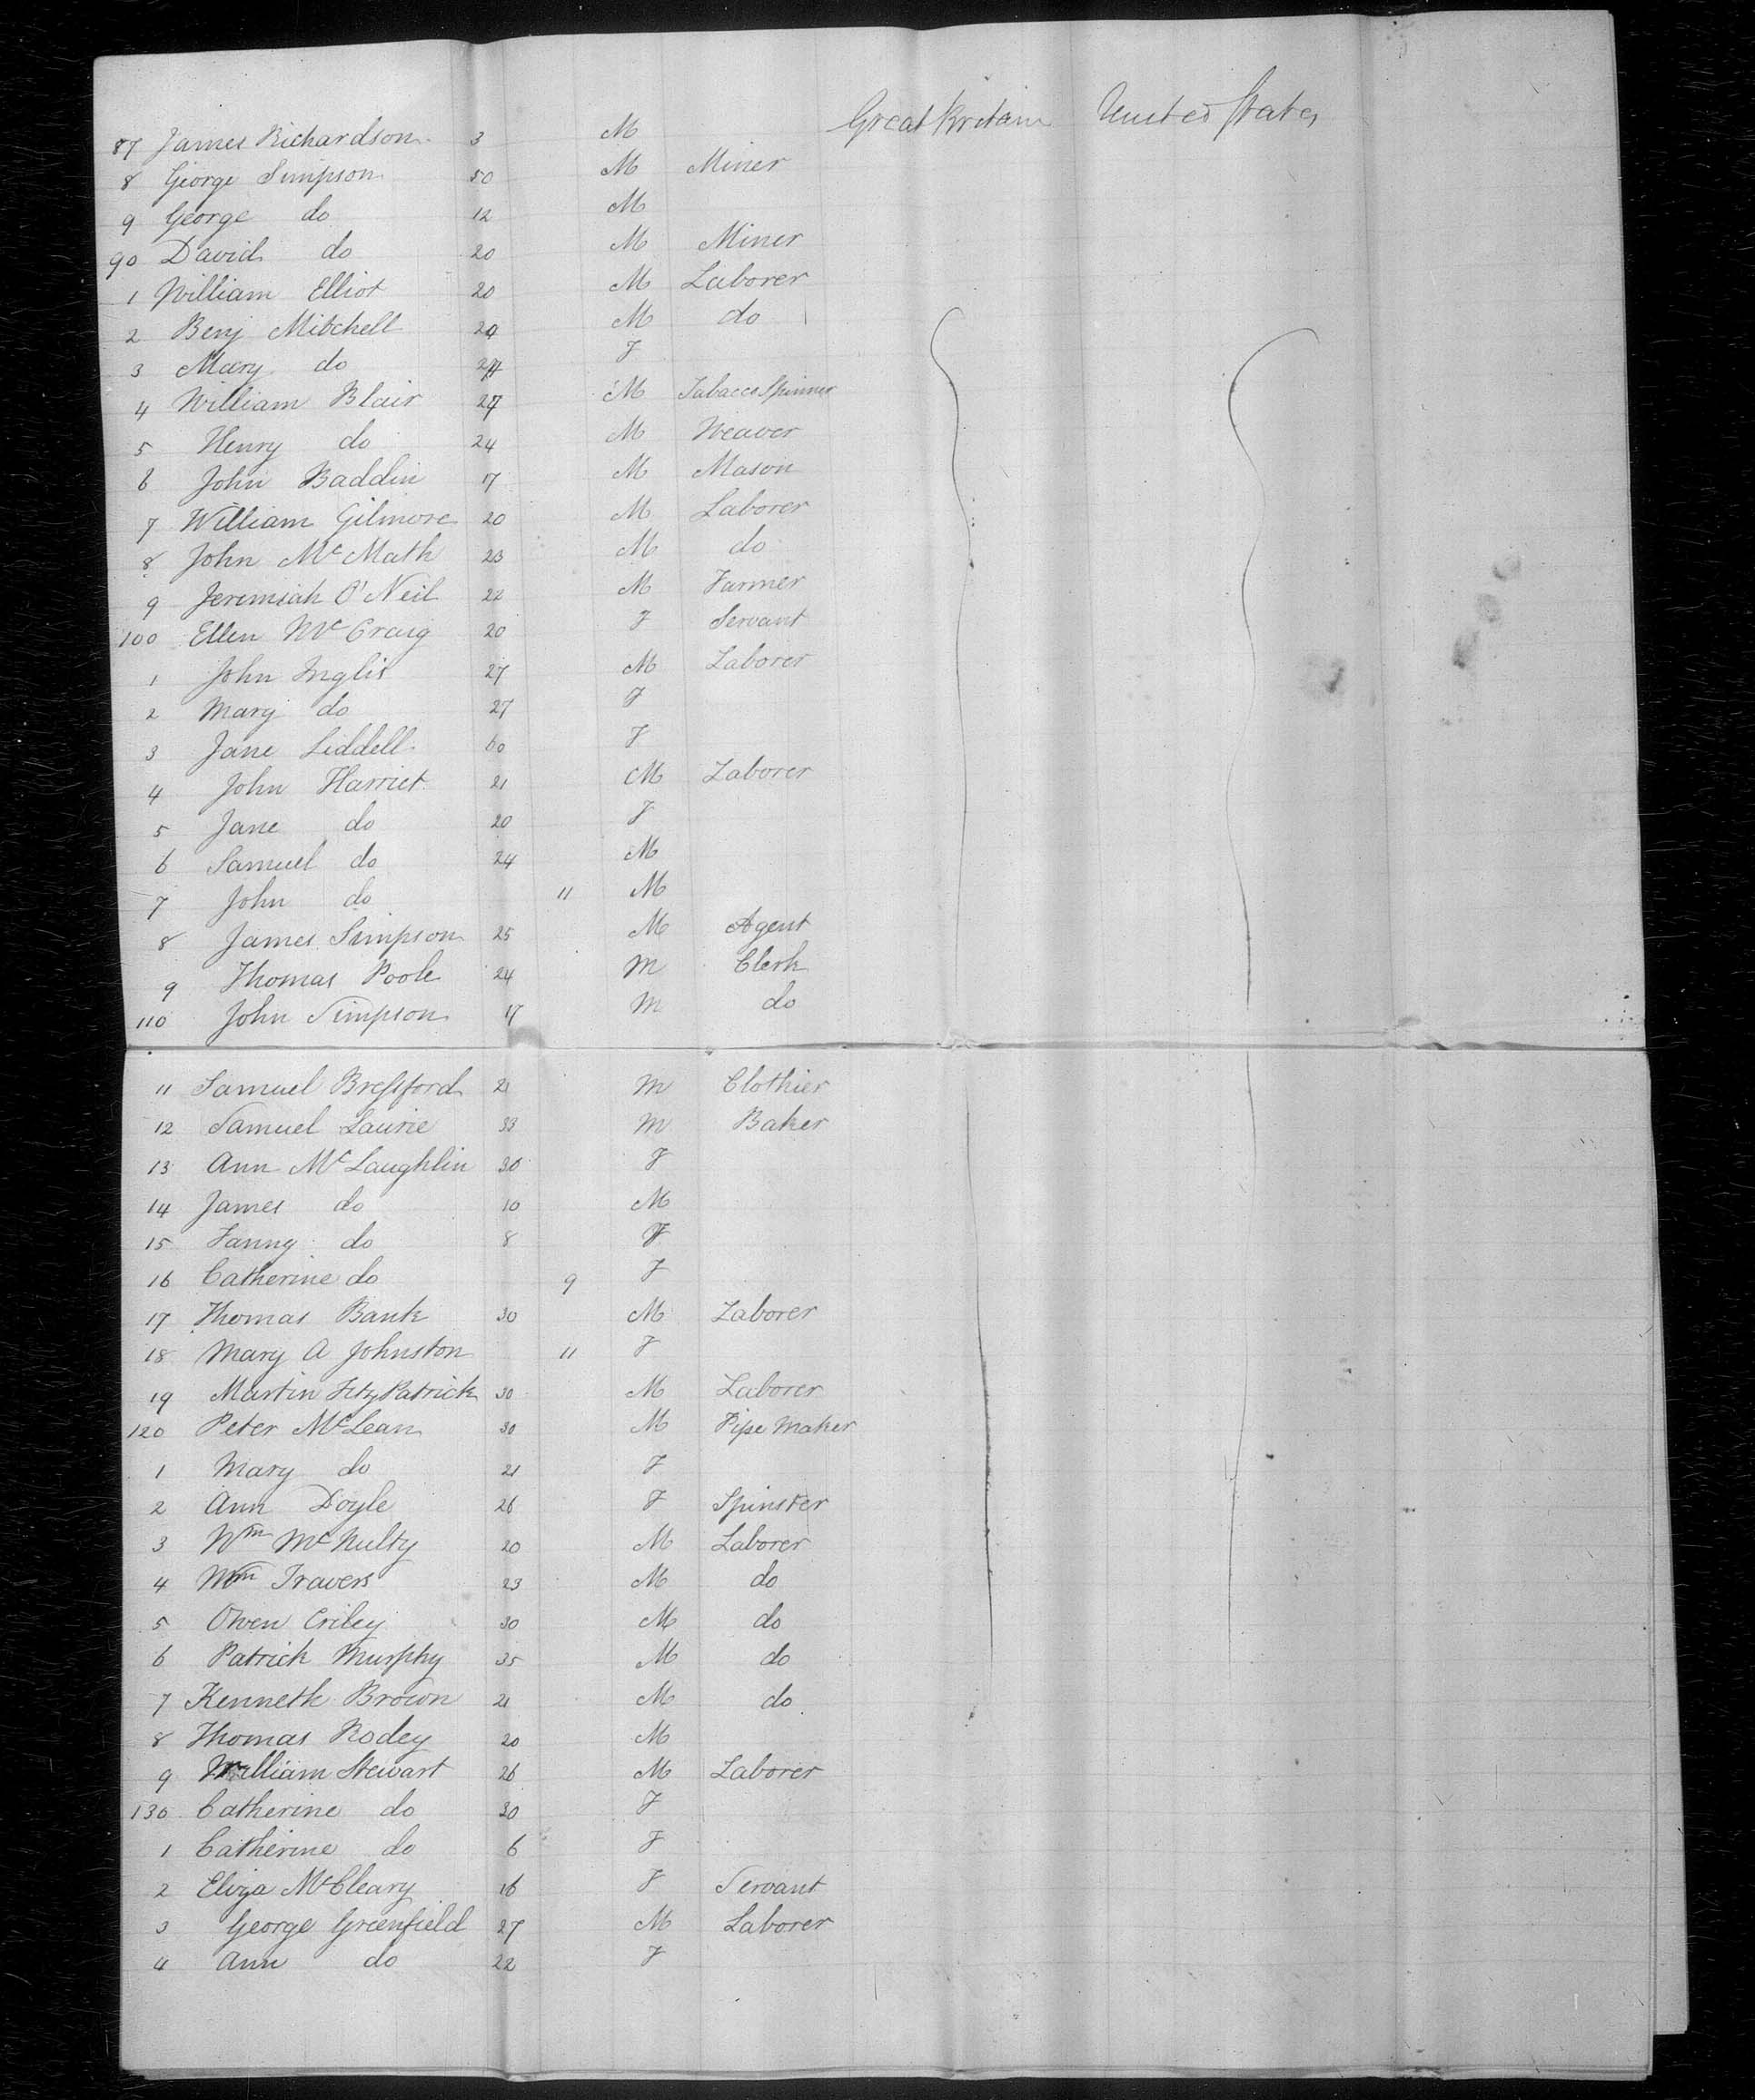 87 James Richardson 3 M Great Britain United States
8 George Simpson 50 M Miner
9 George do 12 M
90 David do 20 M Miner
1 William Elliot 20 M Laborer
2 Benj Mitchell 24 M do
3 Mary do F
4 William Blair 27 M Tabacco Spinner
5 Henry do 24 M Weaver
6 John Baddin 17 M Mason
7 William Gilmore 20 M Laborer
8 John McMath 23 M do
9 Jeremiah O'Neil 22 M Farmer
100 Ellen McCraig 20 F Servant
1 John Inglis 27 M Laborer
2 Mary do 27 F
3 Jane Liddell 60 F
4 John Harriet 21 M Laborer
5 Jane do 20 F
6 Samuel do 24 M
7 John do 11 M
8 James Simpson 25 M Agent
9 Thomas Poole 24 M Clerk
110 John Simpson 17 M do
11 Samuel Bressford 21 M Clothier
12 Samuel Laurie 33 M Baker
13 Ann McLaughlin 30 F
14 James do 10 M
15 Fanny do 8 F
16 Catherine do 9 F
17 Thomas Bank 30 M Laborer
18 Mary A Johnston 11 F
19 Martin FitzPatrick 30 M Laborer
120 Peter McLean 30 M Pipe Maker
1 Mary do 21 F
2 Ann Doyle 26 F Spinster
3 Wm McNulty 20 M Laborer
4 Wm Travers 23 M do
5 Owen Criley 30 M do
6 Patrick Murphy 35 M do
7 Kenneth Brown 21 M do
8 Thomas Rodey 20 M
9 William Stewart 26 M Laborer
130 Catherine do 30 F
1 Catherine do 6 F
2 Eliza McCleary 16 F Servant
3 George Greenfield 27 M Laborer
4 Ann do 22 F